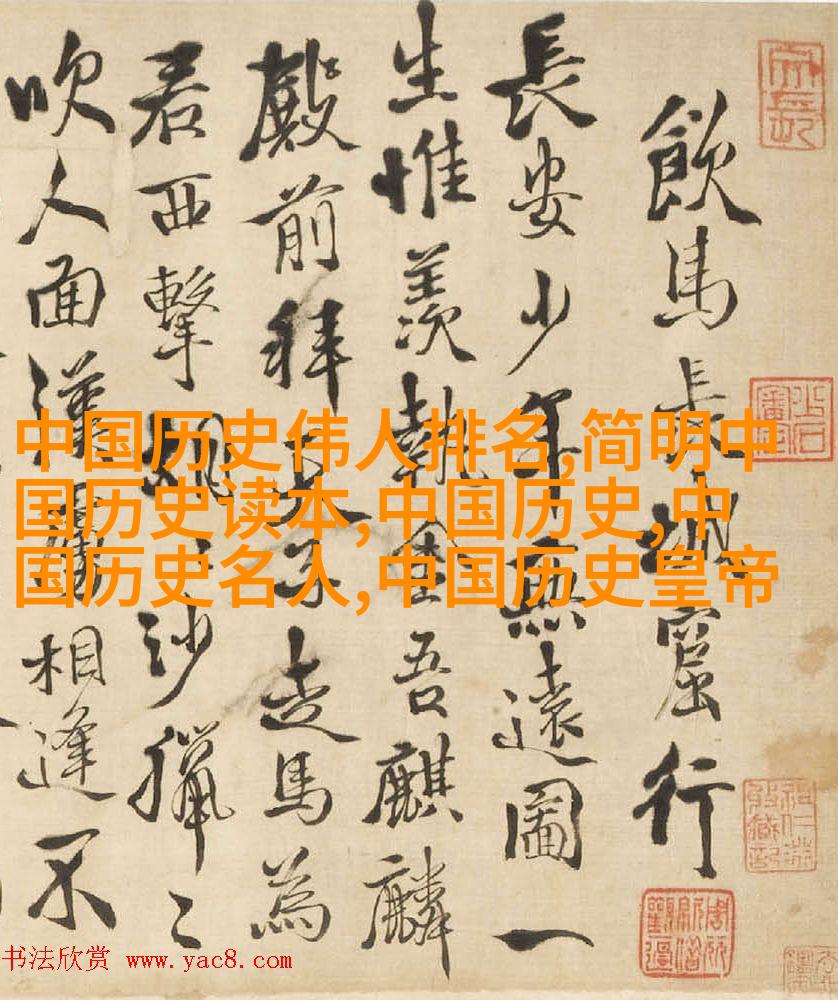 飲馬長城窟行
長安少年無遠圖一
生惟羨執金吾麒麟
殿前拜天子走馬為
君西擊胡〻沙獵〻
吹人面漢虜相逢不
中国历史伟人排名,简明中
国历史读本,中国历史,中
国历史名人,中国历史皇帝
书法欣赏 www.yac8.com